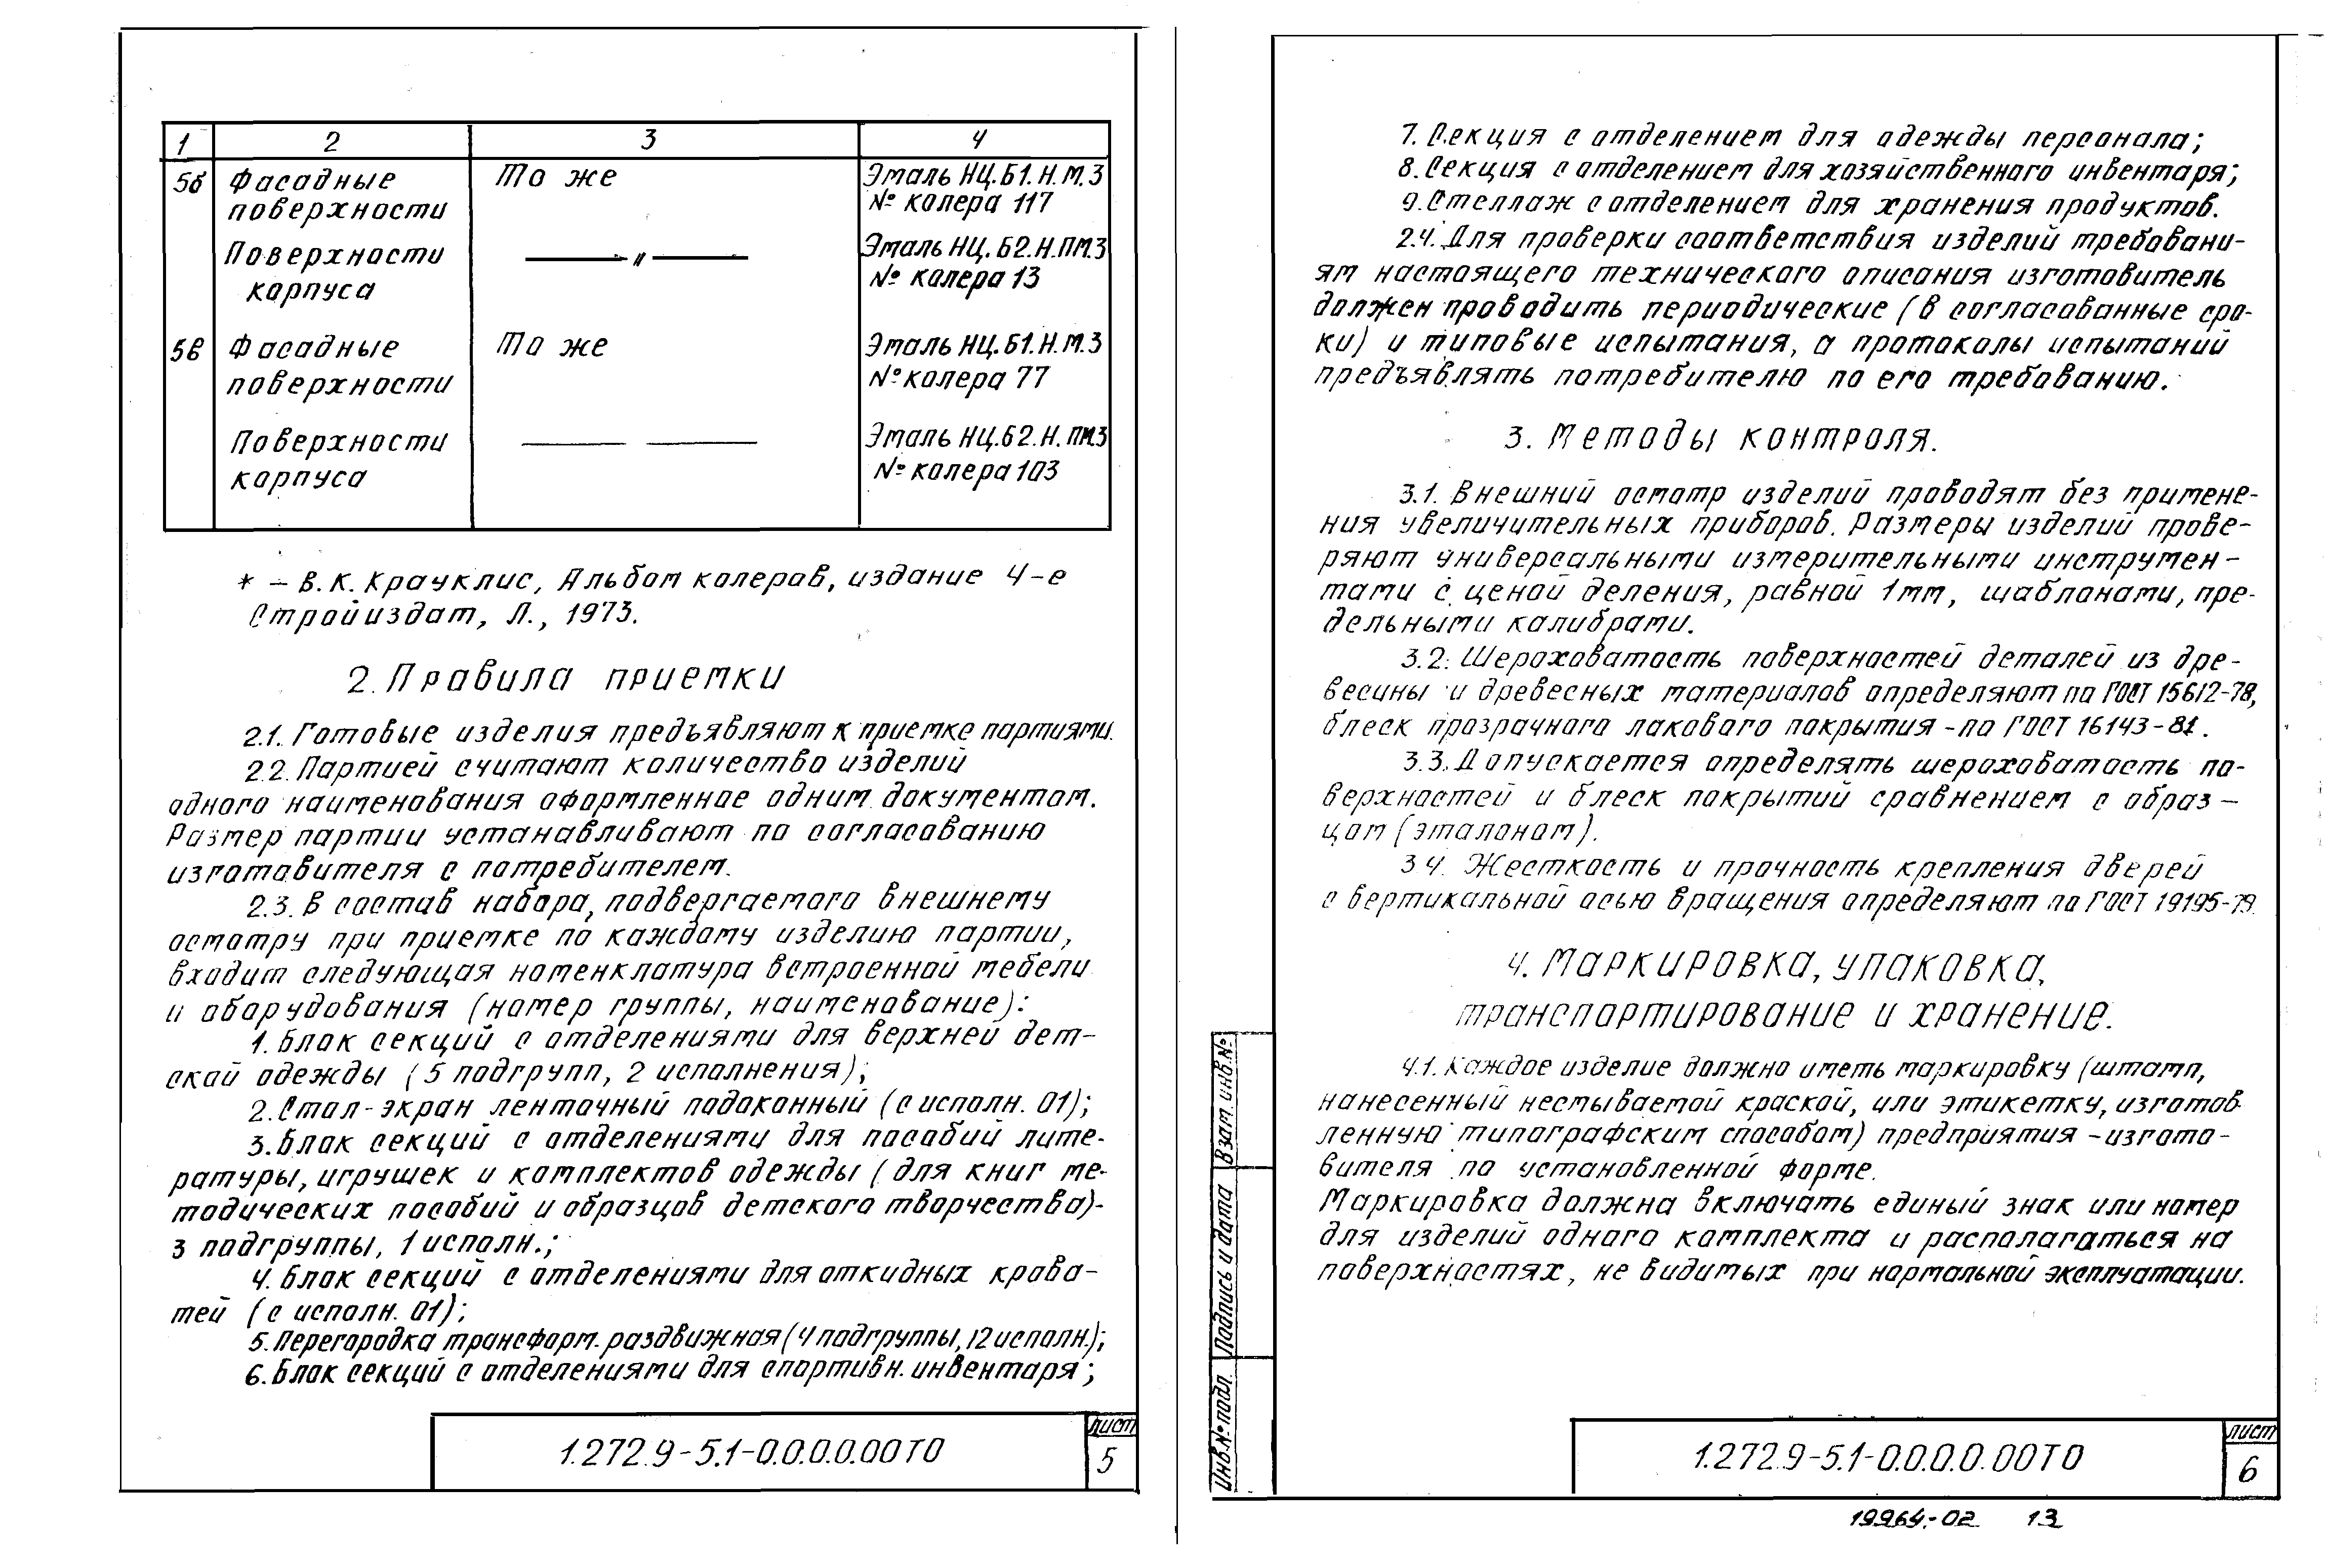 1 2 3 4
5б Фасадные поверхности То же Эмаль НЦ.Б1.Н.М.3 № колера 117
Поверхности корпуса —〃— Эмаль НЦ.Б2.Н.ПМ.3 № колера 13
5в Фасадные поверхности То же Эмаль НЦ.Б1.Н.М.3 № колера 77
Поверхности корпуса — — Эмаль НЦ.Б2.Н.ПМ.3 № колера 103
* – В.К. Крауклис, Альбом колеров, издание 4-е
Стройиздат, Л., 1973.
2. Правила приемки
2.1. Готовые изделия предъявляют к приемке партиями.
2.2. Партией считают количество изделий
одного наименования оформленное одним документом.
Размер партии устанавливают по согласованию
изготовителя с потребителем.
2.3. В состав набора, подвергаемого внешнему
осмотру при приемке по каждому изделию партии,
входит следующая номенклатура встроенной мебели
и оборудования (номер группы, наименование):
1. Блок секций с отделениями для верхней дет-
ской одежды (5 подгрупп, 2 исполнения);
2. Стол-экран ленточный подоконный (с исполн. 01);
3. Блок секций с отделениями для пособий лите-
ратуры, игрушек и комплектов одежды (для книг ме-
тодических пособий и образцов детского творчества)-
3 подгруппы, 1 исполн.;
4. Блок секций с отделениями для откидных крова-
тей (с исполн. 01);
5. Перегородка трансформ. раздвижная (4 подгруппы, 12 исполн.);
6. Блок секций с отделениями для спортивн. инвентаря;
1.272.9-5.1-0.0.0.0.00ТО
лист
5
7. Секция с отделением для одежды персонала;
8. Секция с отделением для хозяйственного инвентаря;
9. Стеллаж с отделением для хранения продуктов.
2.4. Для проверки соответствия изделий требовани-
ям настоящего технического описания изготовитель
должен проводить периодические (в согласованные сро-
ки) и типовые испытания, а протоколы испытаний
предъявлять потребителю по его требованию.
3. Методы контроля.
3.1. Внешний осмотр изделий проводят без примене-
ния увеличительных приборов. Размеры изделий прове-
ряют универсальными измерительными инструмен-
тами с ценой деления, равной 1мм, шаблонами, пре-
дельными калибрами.
3.2. Шероховатость поверхностей деталей из дре-
весины и древесных материалов определяют по ГОСТ 15612-78,
блеск прозрачного лакового покрытия - по ГОСТ 16143-81.
3.3. Допускается определять шероховатость по-
верхностей и блеск покрытий сравнением с образ-
цом (эталоном).
3.4. Жесткость и прочность крепления дверей
с вертикальной осью вращения определяют по ГОСТ 19195-79.
4. Маркировка, упаковка,
транспортирование и хранение.
4.1. Каждое изделие должно иметь маркировку (штамп,
нанесенный несмываемой краской, или этикетку, изготов-
ленную типографским способом) предприятия-изгото-
вителя по установленной форме.
Маркировка должна включать единый знак или номер
для изделий одного комплекта и располагаться на
поверхностях, не видимых при нормальной эксплуатации.
Взам. инв.№
Подпись и дата
Инв.№ подл.
1.272.9-5.1-0.0.0.0.00ТО
лист
6
19964-02 13